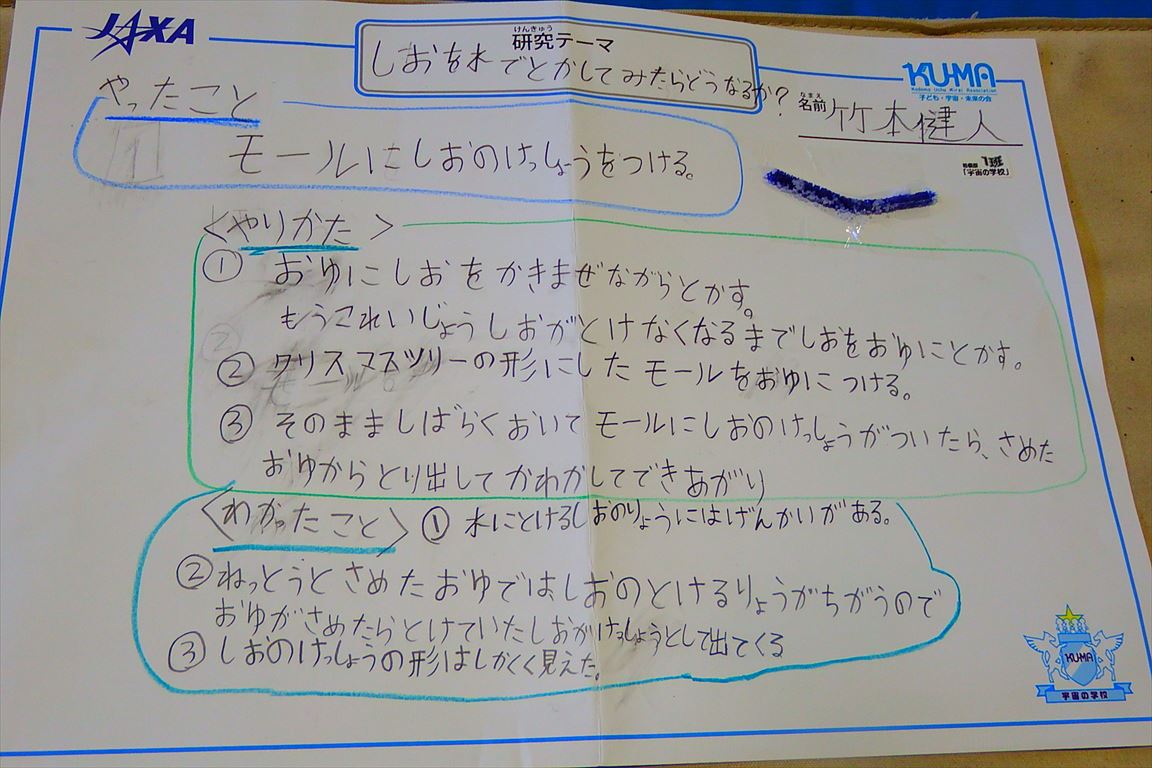 JAXA
けんきゅう
研究テーマ
しおを水でとかしてみたらどうなるか?
KU-MA
Kodomo Uchu Mirai Association
子ども・宇宙・未来の会
なまえ
名前 竹本健人
1班
「宇宙の学校」
やったこと
モールにしおのけっしょうをつける。
<やりかた>
① おゆにしおをかきまぜながらとかす。
もうこれいじょうしおがとけなくなるまでしおをおゆにとかす。
② クリスマスツリーの形にしたモールをおゆにつける。
③ そのまましばらくおいてモールにしおのけっしょうがついたら、さめた
おゆからとり出してかわかしてできあがり
<わかったこと> ① 水にとけるしおのりょうにはげんかいがある。
② ねっとうとさめたおゆではしおのとけるりょうがちがうので
おゆがさめたらとけていたしおがけっしょうとして出てくる
③ しおのけっしょうの形はしかくく見えた。
KU-MA
宇宙の学校